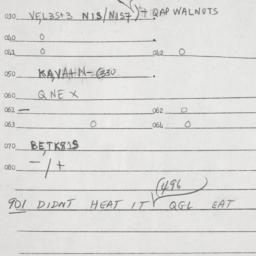 030 VEL35+3 N15/N157)+ QAP WALNUTS
040 0
041 0 042 0
050 KAVAHN-@30
060 QNEX
061 — 062 0
063 0 064 0
070 BETK81S
080 -/+
(496
901 DIDNT HEAT IT QGL EAT